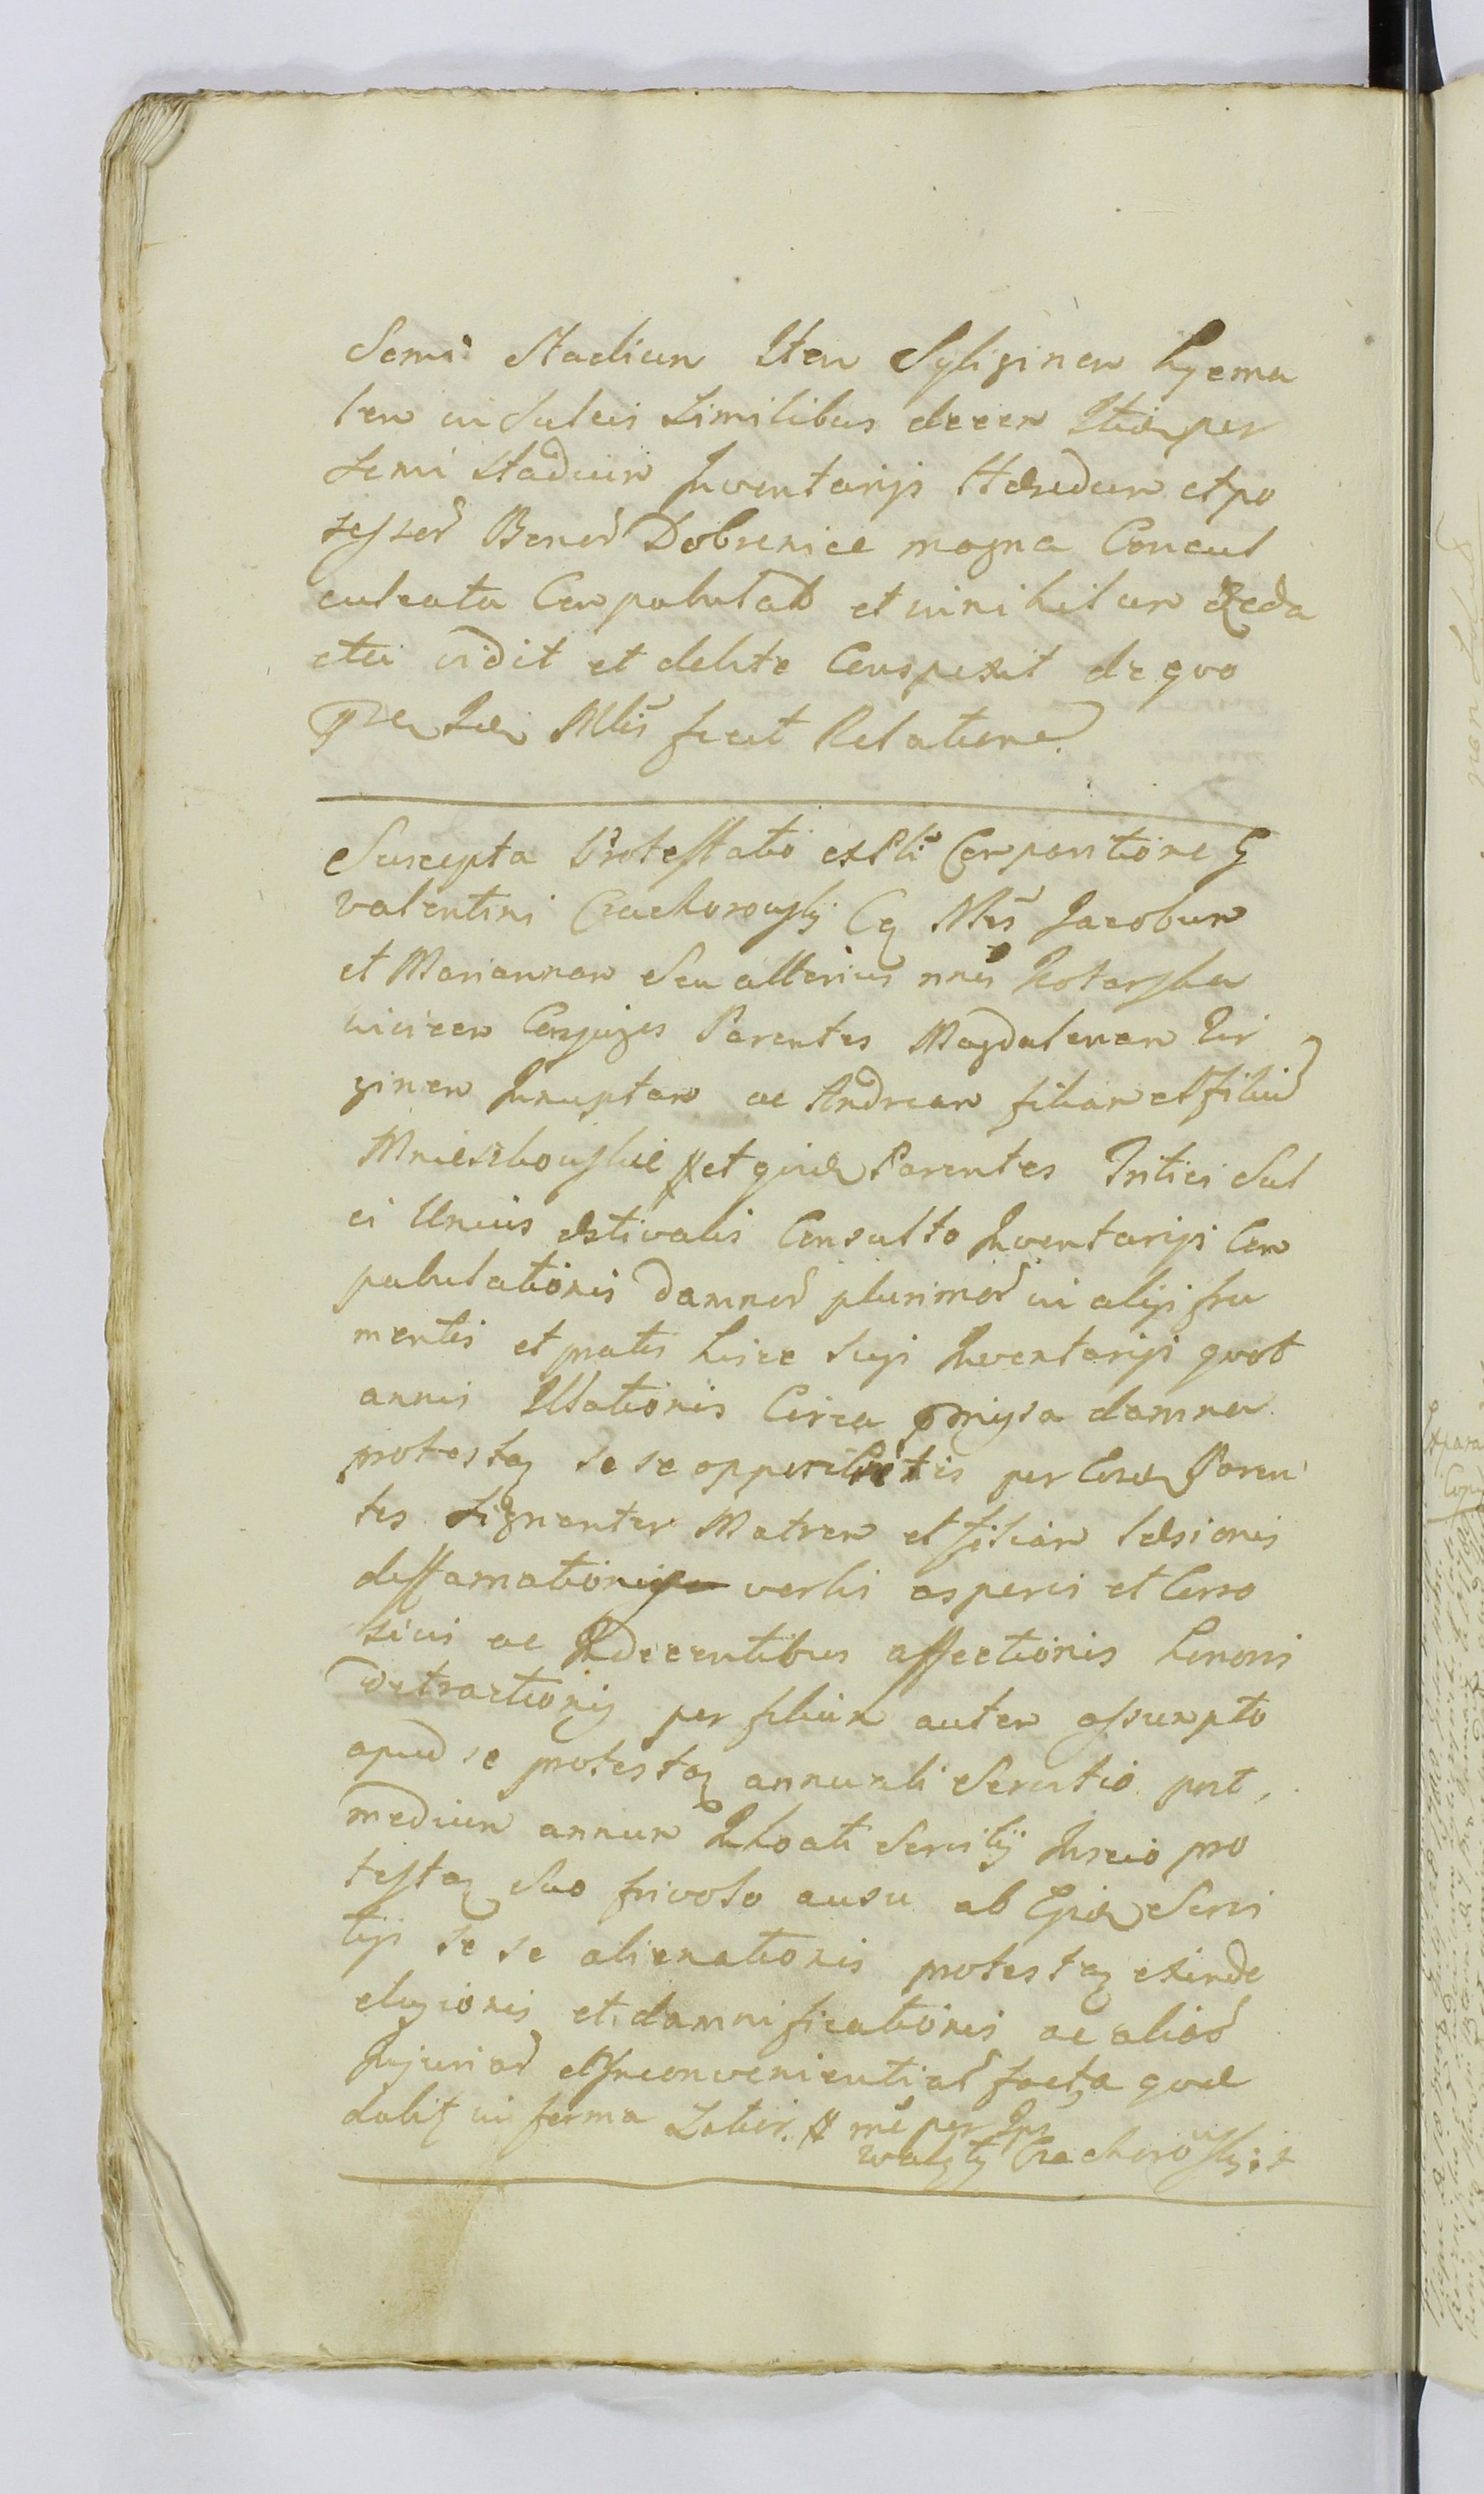 Semi Stadium Item Syliginem hyema
lem in Sulcis Similibus decem Itid per
Semi Stadium Inventarijs Hæredum et po
ssessor Bonor Dobrenice magna Concul
culcata Compabulata et in nihilum reda
cta vidit et debite Conspexit de quo
fecit Relationem
Suscepta Protestatio ex Comparitione G
Valentini Czachorowskij Cq Jacobum
et Mariannam Seu alterius Kotarska
invicem Conjuges Parentes Magdalenam Vir
ginem Innuptam ac Andream filiam et filiu
et quid Parentes Tritici Sul
ci Unius æstivalis Consulto Inventarijs Com
pabulationis damnor plurimor in alijs fru
mentis et pratis hisce Suis Inventarijs quot
annis Illationis Circa præmissa damna
protestaq se se per Eosd Paren
tes Signanter Matrem et filiam læsionis
deffamationis verbis asperis et Corro
sivis ac Indecentibus affectionis honoris
detractionis per filium autem assumpto
apud se protestaq annuali Servitio post
medium annum Inhoati Servitij Inscio pro
testaq Suo frivolo ausu ab Ejusd Servi
tijs se se alienationis protestaq exinde
elusionis et damnificationis ac alior
Injuriar et Inconvenientiar facta quæ
dabit in forma Latior
Czachorowskij